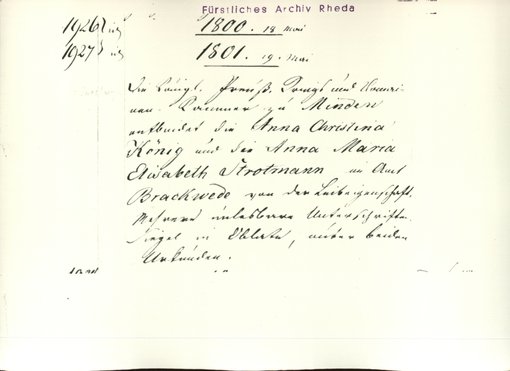 Fürstliches Archiv Rheda
1926 1800. 18 Mai
1927 1801. 19. Mai
Die Königl. Preuß. Kriegs und Domai-
nen Kammer zu Minden
entbindet die Anna Christina
König und die Anna Maria
Elisabeth Strotmann im Amt
Brackwede von der Leibeigenschaft.
Mehrere unlesbare Unterschriften
Siegel in Oblate, unter beiden
Urkunden.